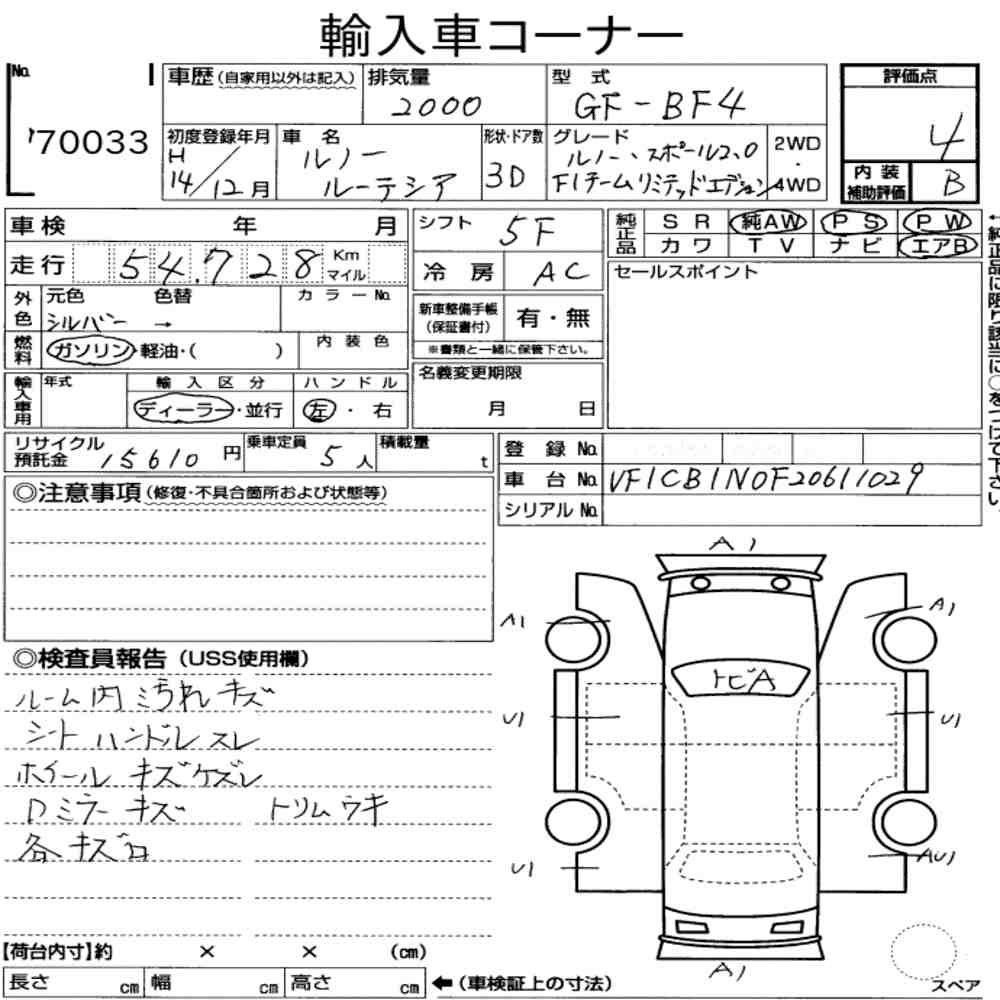 輸入車コーナー
No.
70033
車歴(自家用以外は記入)
排気量
2000
型 式
GF-BF4
評価点
4
初度登録年月
H
14/12月
車 名
ルノー
ルーテシア
形状・ドア数
3D
グレード
ルノー、スポール2.0
F1チームリミテッドエデション
2WD
・
4WD
内 装
補助評価
B
車検 年 月
シフト
5F
純正品
S R 純AW P S P W
カワ T V ナビ エアB
走行 54,728 Km
マイル
冷 房
AC
セールスポイント
外色
元色 色替
シルバー →
カラー No.
新車整備手帳
(保証書付)
有・無
※書類と一緒に保管下さい。
燃料
ガソリン・軽油・( )
内 装 色
名義変更期限
月 日
輸入車用
年式
輸 入 区 分
ディーラー・並行
ハ ン ド ル
左・右
←純正品に限り該当に○をつけて下さい。
リサイクル
預託金 15610 円
乗車定員 5 人
積載量 t
登 録 No.
車 台 No. VF1CB1N0F20611029
シリアル No.
◎注意事項(修復・不具合箇所および状態等)
◎検査員報告(USS使用欄)
ルーム内 汚れ キズ
シート ハンドル スレ
ホイール キズケズレ
Dミラー キズ トリムウキ
各 キズ
A1
A1
A1
トビA
U1
U1
U1
AU1
A1
スペア
【荷台内寸】約 × × (cm)
長さ cm 幅 cm 高さ cm ←(車検証上の寸法)